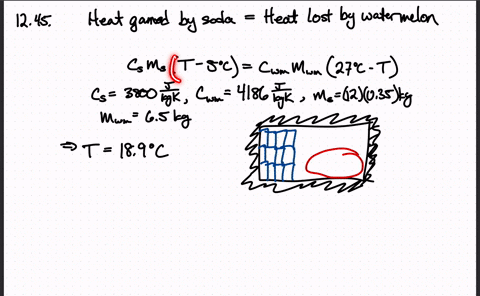 12.45. Heat gained by soda = Heat lost by watermelon
Cs ms (T-5°C) = Cwm Mwm (27°C - T)
Cs = 3800 J/kgK, Cwm = 4186 J/kgK, ms = (12)(0.35)kg
Mwm = 6.5 kg
⇒ T = 18.9°C